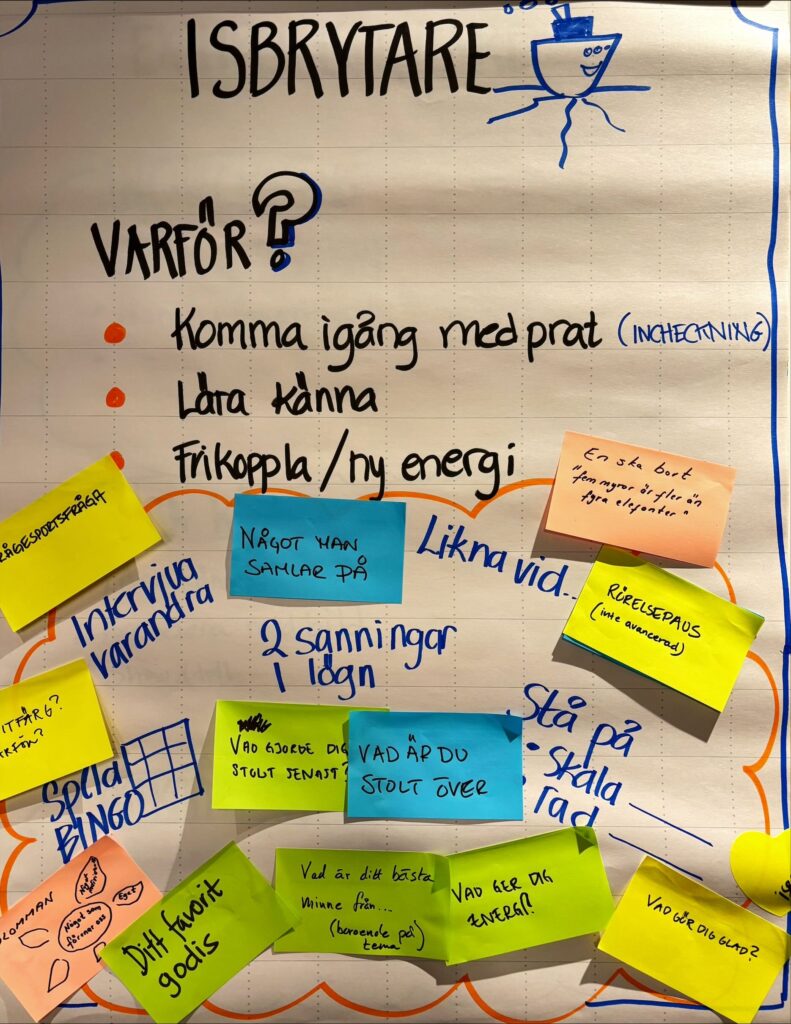 ISBRYTARE
VARFÖR?
Komma igång med prat (INCHECKNING)
Lära känna
Frikoppla/ny energi
En ska bort
"fem myror är fler än
fyra elefanter"
ÅGESPORTSFRÅGA
NÅGOT MAN
SAMLAR PÅ
Likna vid..
RÖRELSEPAUS
(inte avancerad)
Intervjua
varandra
2 sanningar
1 lögn
ITFÄRG?
RFÖR?
Stå på
• skala
rad
VAD GJORDE DIG
STOLT SENAST?
VAD ÄR DU
STOLT ÖVER
Spela
BINGO
LOMMAN
Något som
förenar oss
Eget
Ditt favorit
godis
Vad är ditt bästa
minne från...
(beroende på
tema)
VAD GER DIG
ENERGI?
VAD GÖR DIG GLAD?